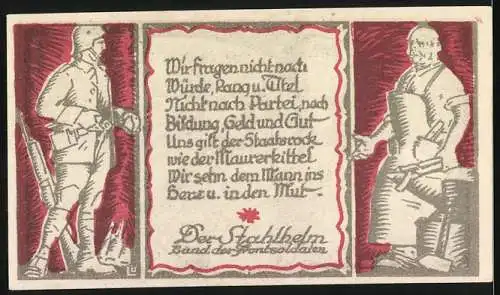 Wir fragen nicht nach
Würde, Rang u. Titel
Nicht nach Partei, nach
Bildung, Geld und Gut
Uns gilt der Staatsrock
wie der Maurerkittel
Wir sehn dem Mann ins
Herz u. in den Mut.
Der Stahlhelm
Bund der Frontsoldaten